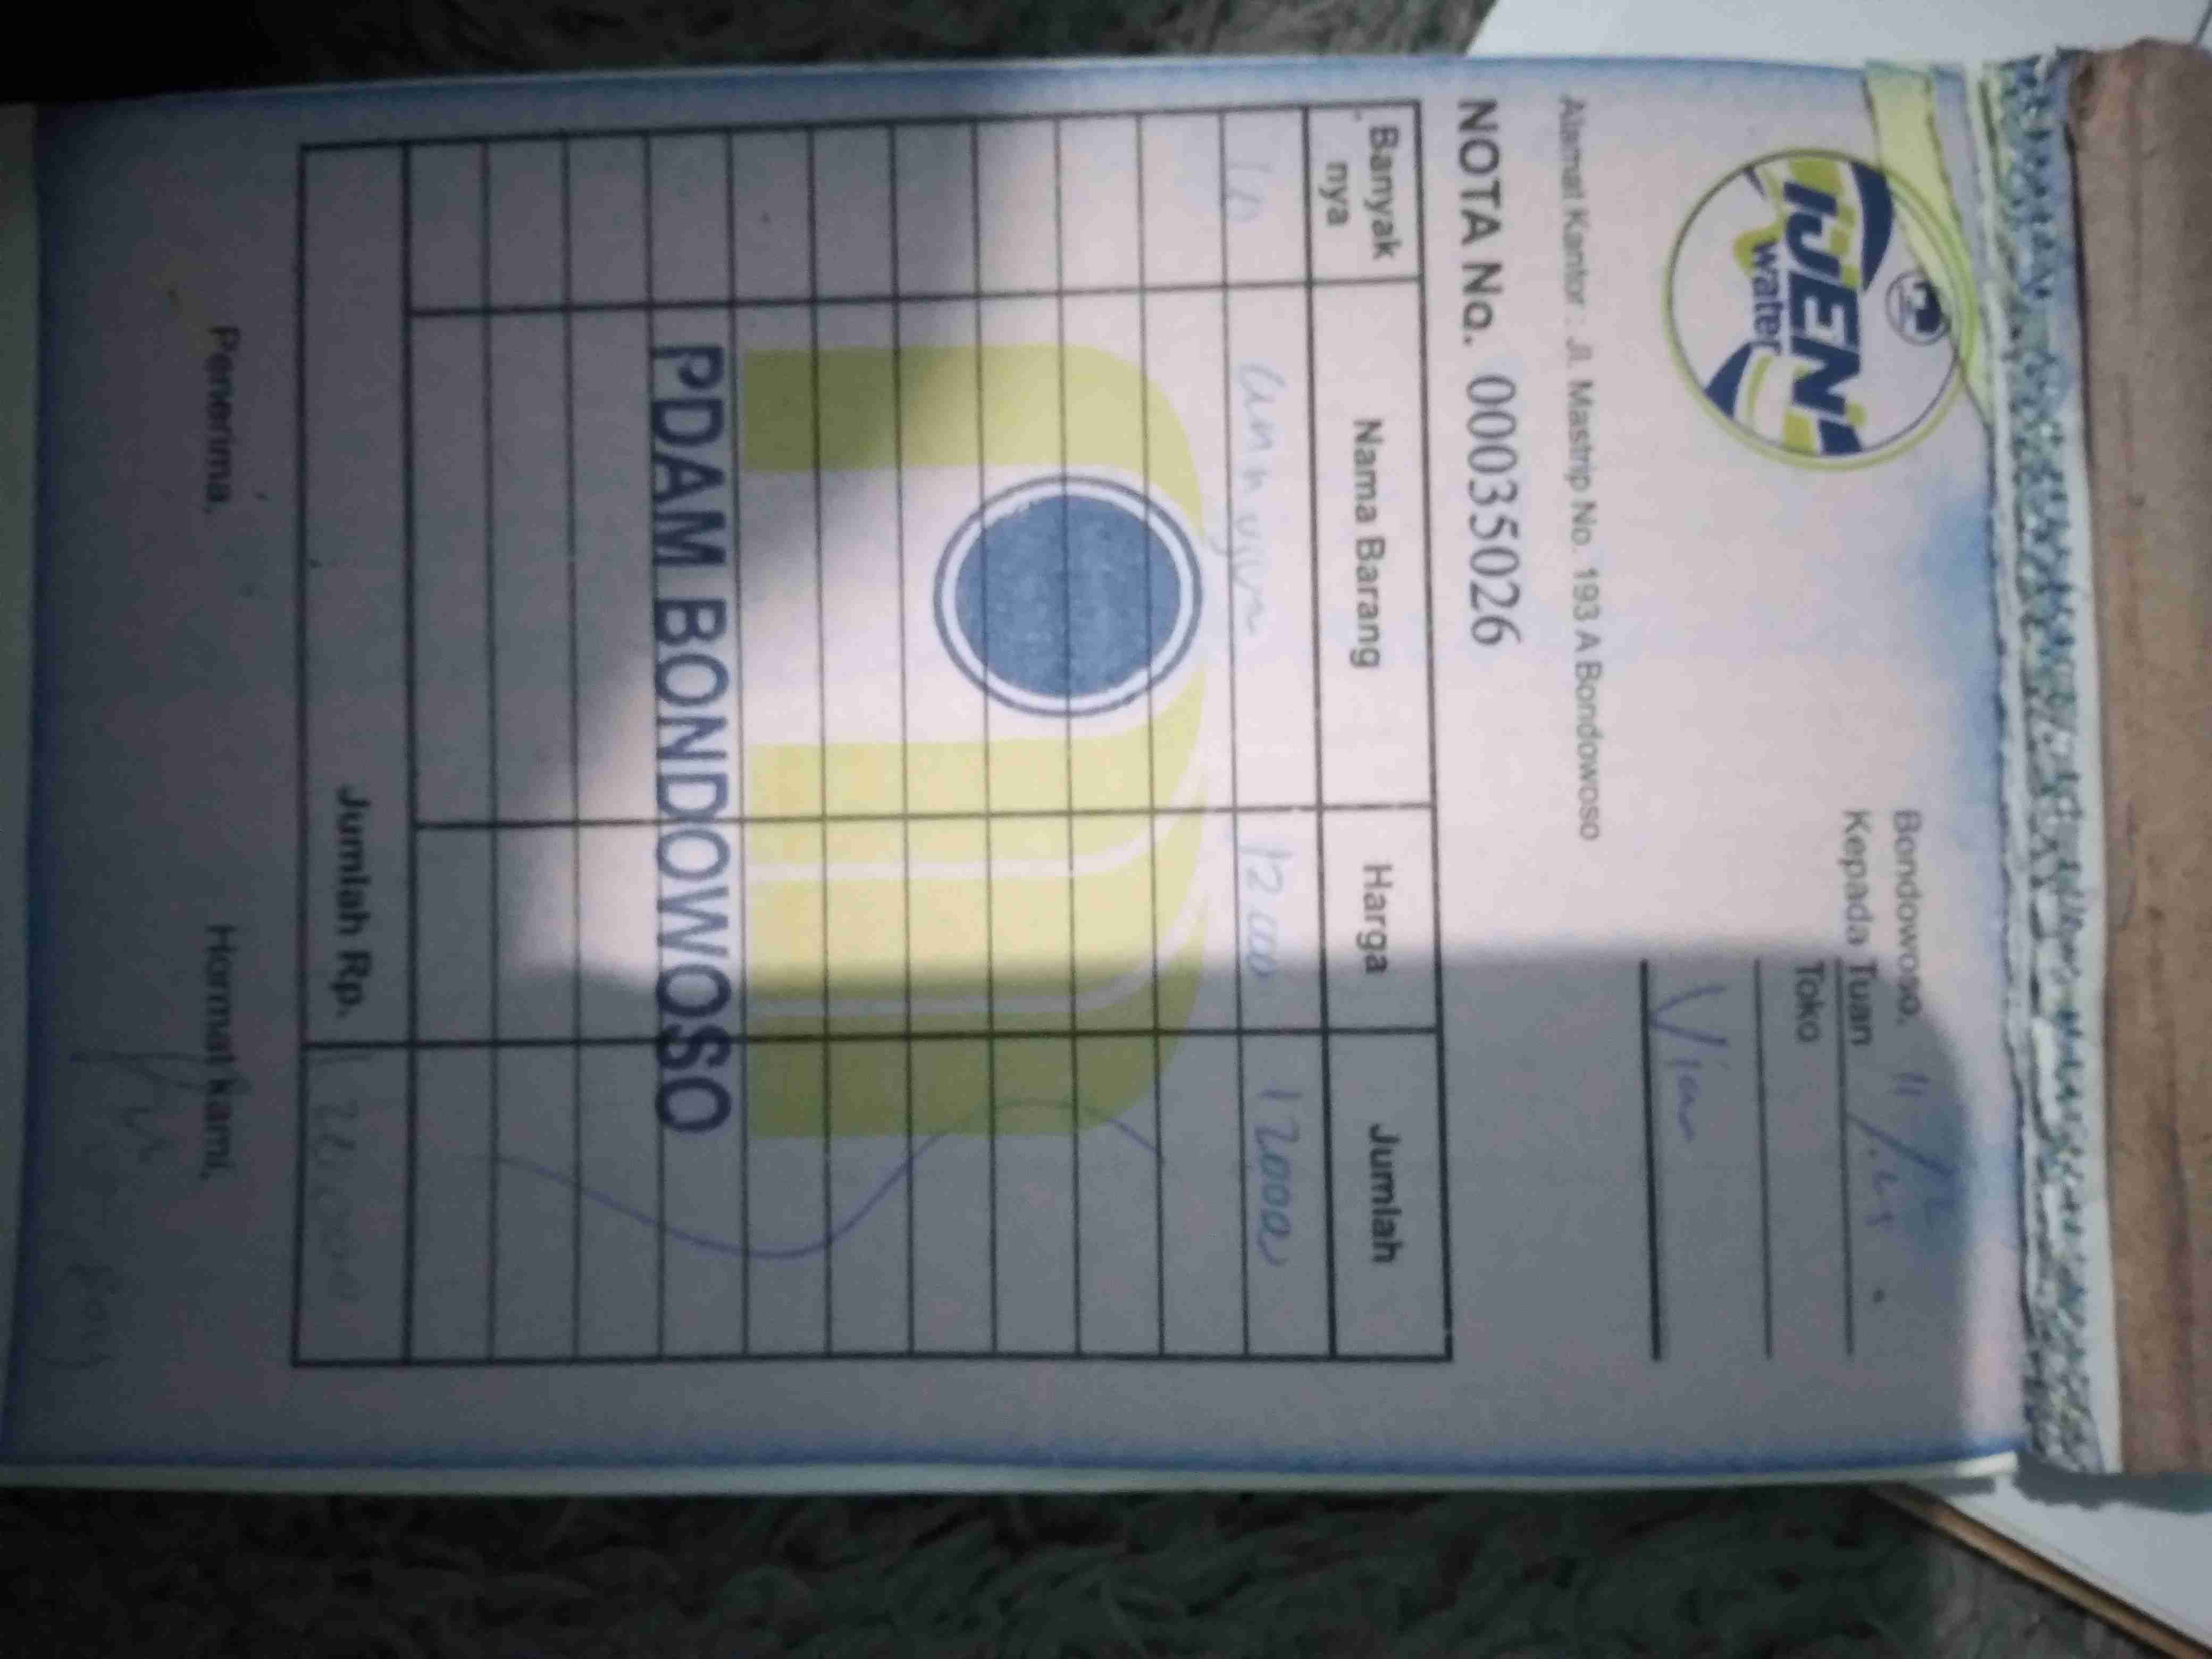 IJEN
water
Bondowoso,
Kepada Tuan
Toko
Vian
Alamat Kantor : Jl. Mastrip No. 193 A Bondowoso
NOTA No. 000035026
Banyak nya Nama Barang Harga Jumlah
10 12.000 120000
PDAM BONDOWOSO
Jumlah Rp. 120000
Penerima, Hormat Kami,